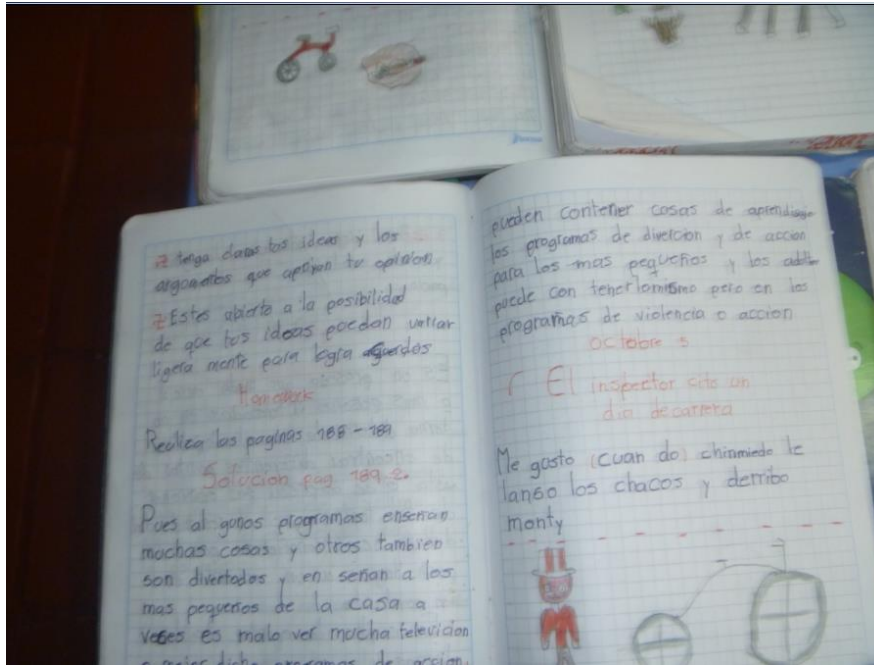 tenga claras tus ideas y los
argumentos que apoyan tu opinion
Estes abierto a la posibilidad
de que tus ideas puedan variar
ligera mente para logra aguerdos
Homework
Realica las paginas 188-189
Solucion pag 189 2.
Pues al gunos programas enseñan
muchas cosas y otros tambien
son divertodos y en señan a los
mas pequeños de la casa a
veses es malo ver mucha televicion
o mejor dicho programas de accion
pueden contener cosas de aprendisaje
los programas de divercion y de accion
para los mas pequeños y los
puede con tener lo mismo pero en los
programas de violencia o accion
octobre 5
El inspector cito un
dia de carrera
Me gusto (cuan do) chinmiedo le
lanso los chacos y derribo
monty